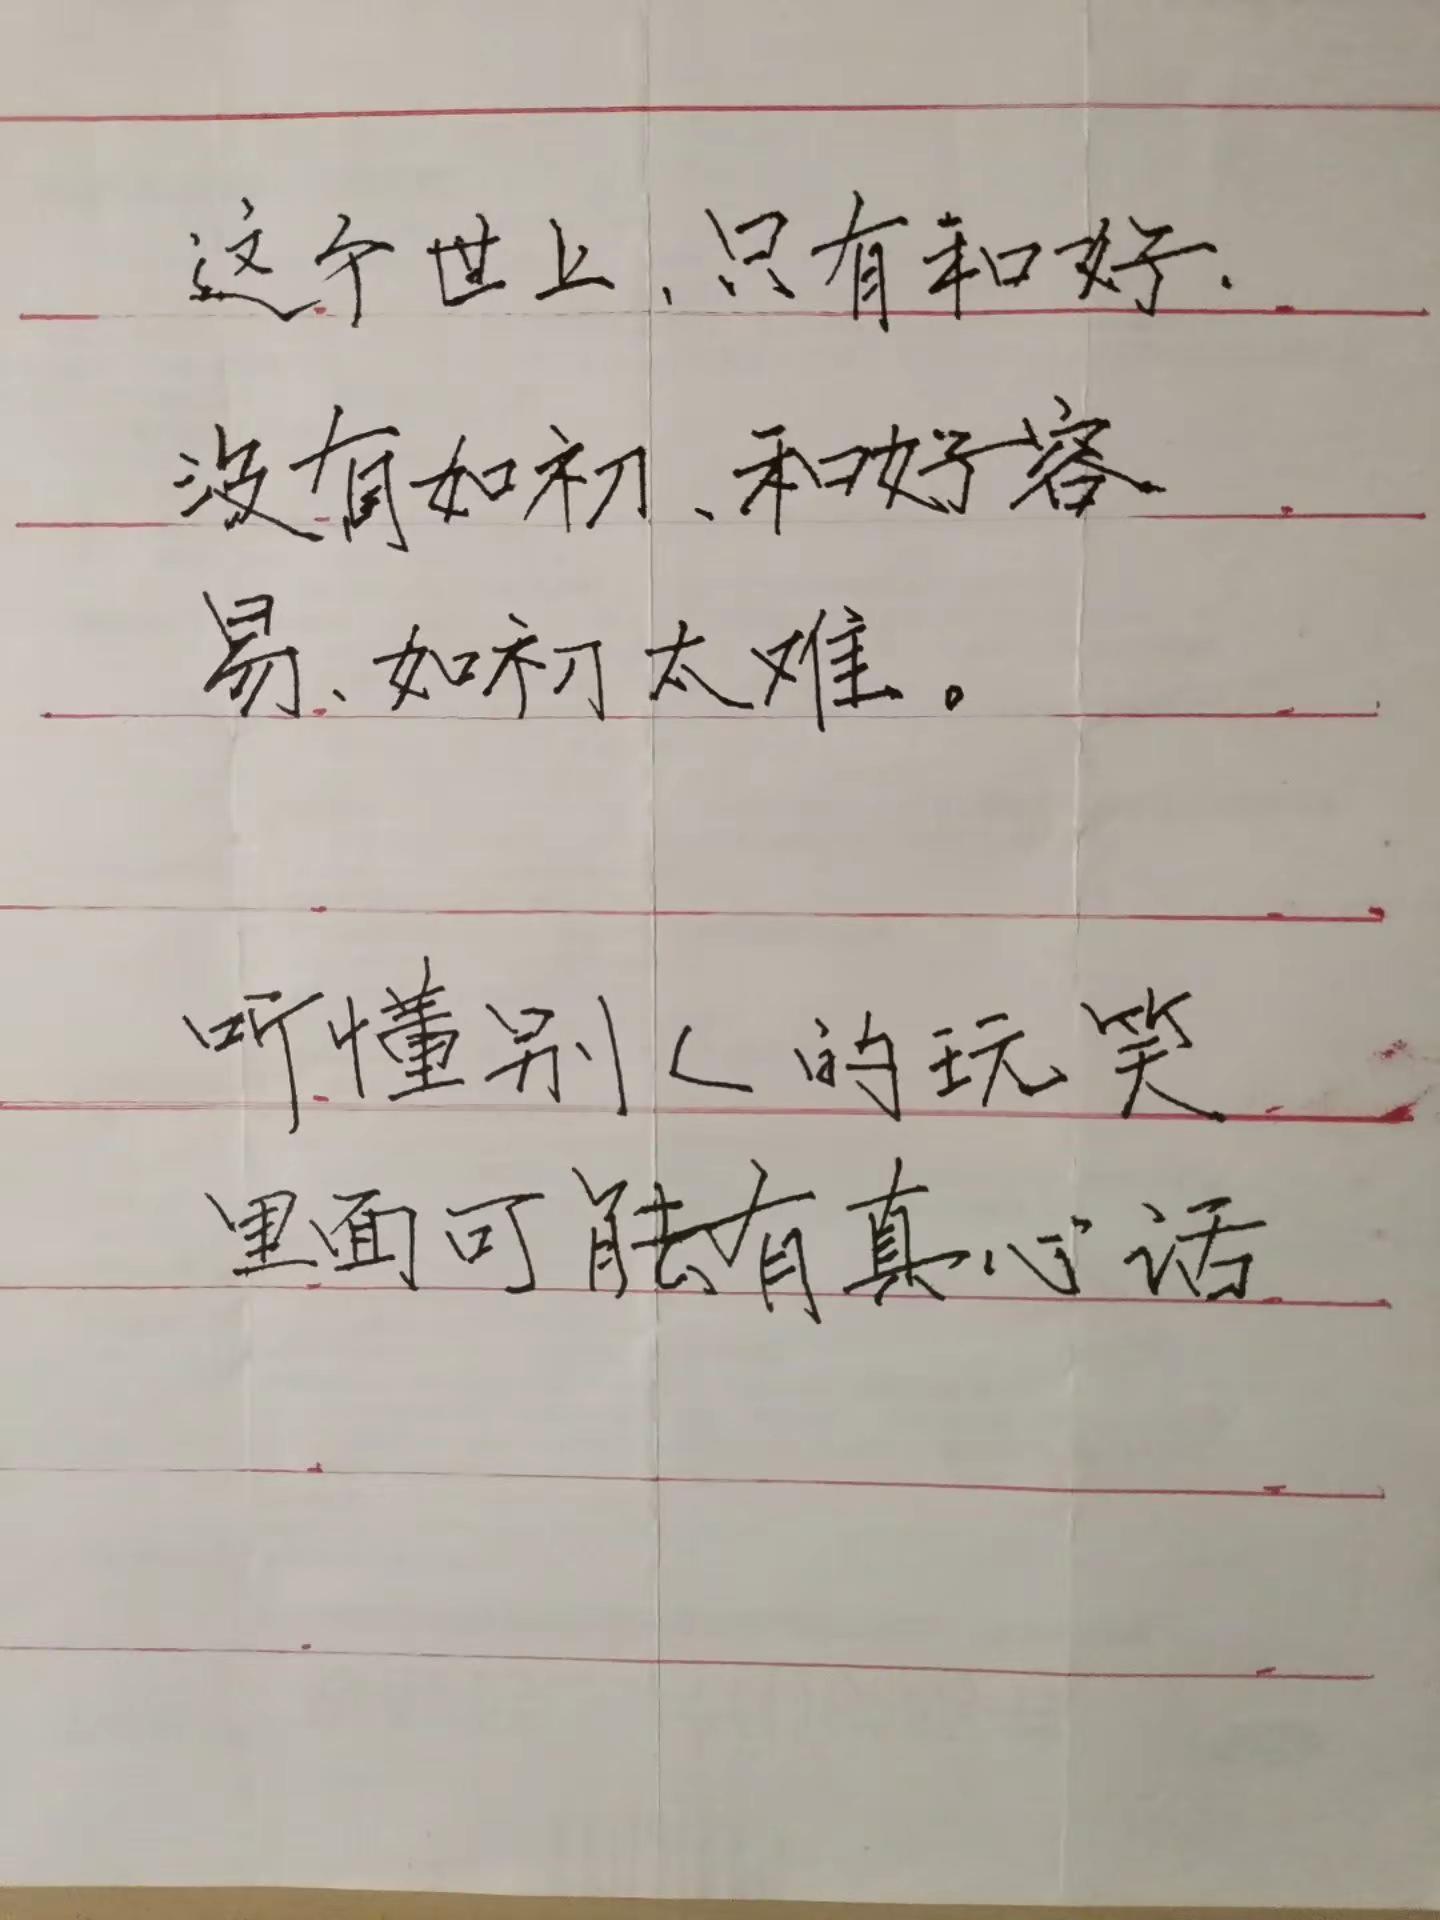 这个世上、只有和好.
没有如初、和好容
易、如初太难。
听懂别人的玩笑
里面可能有真心话